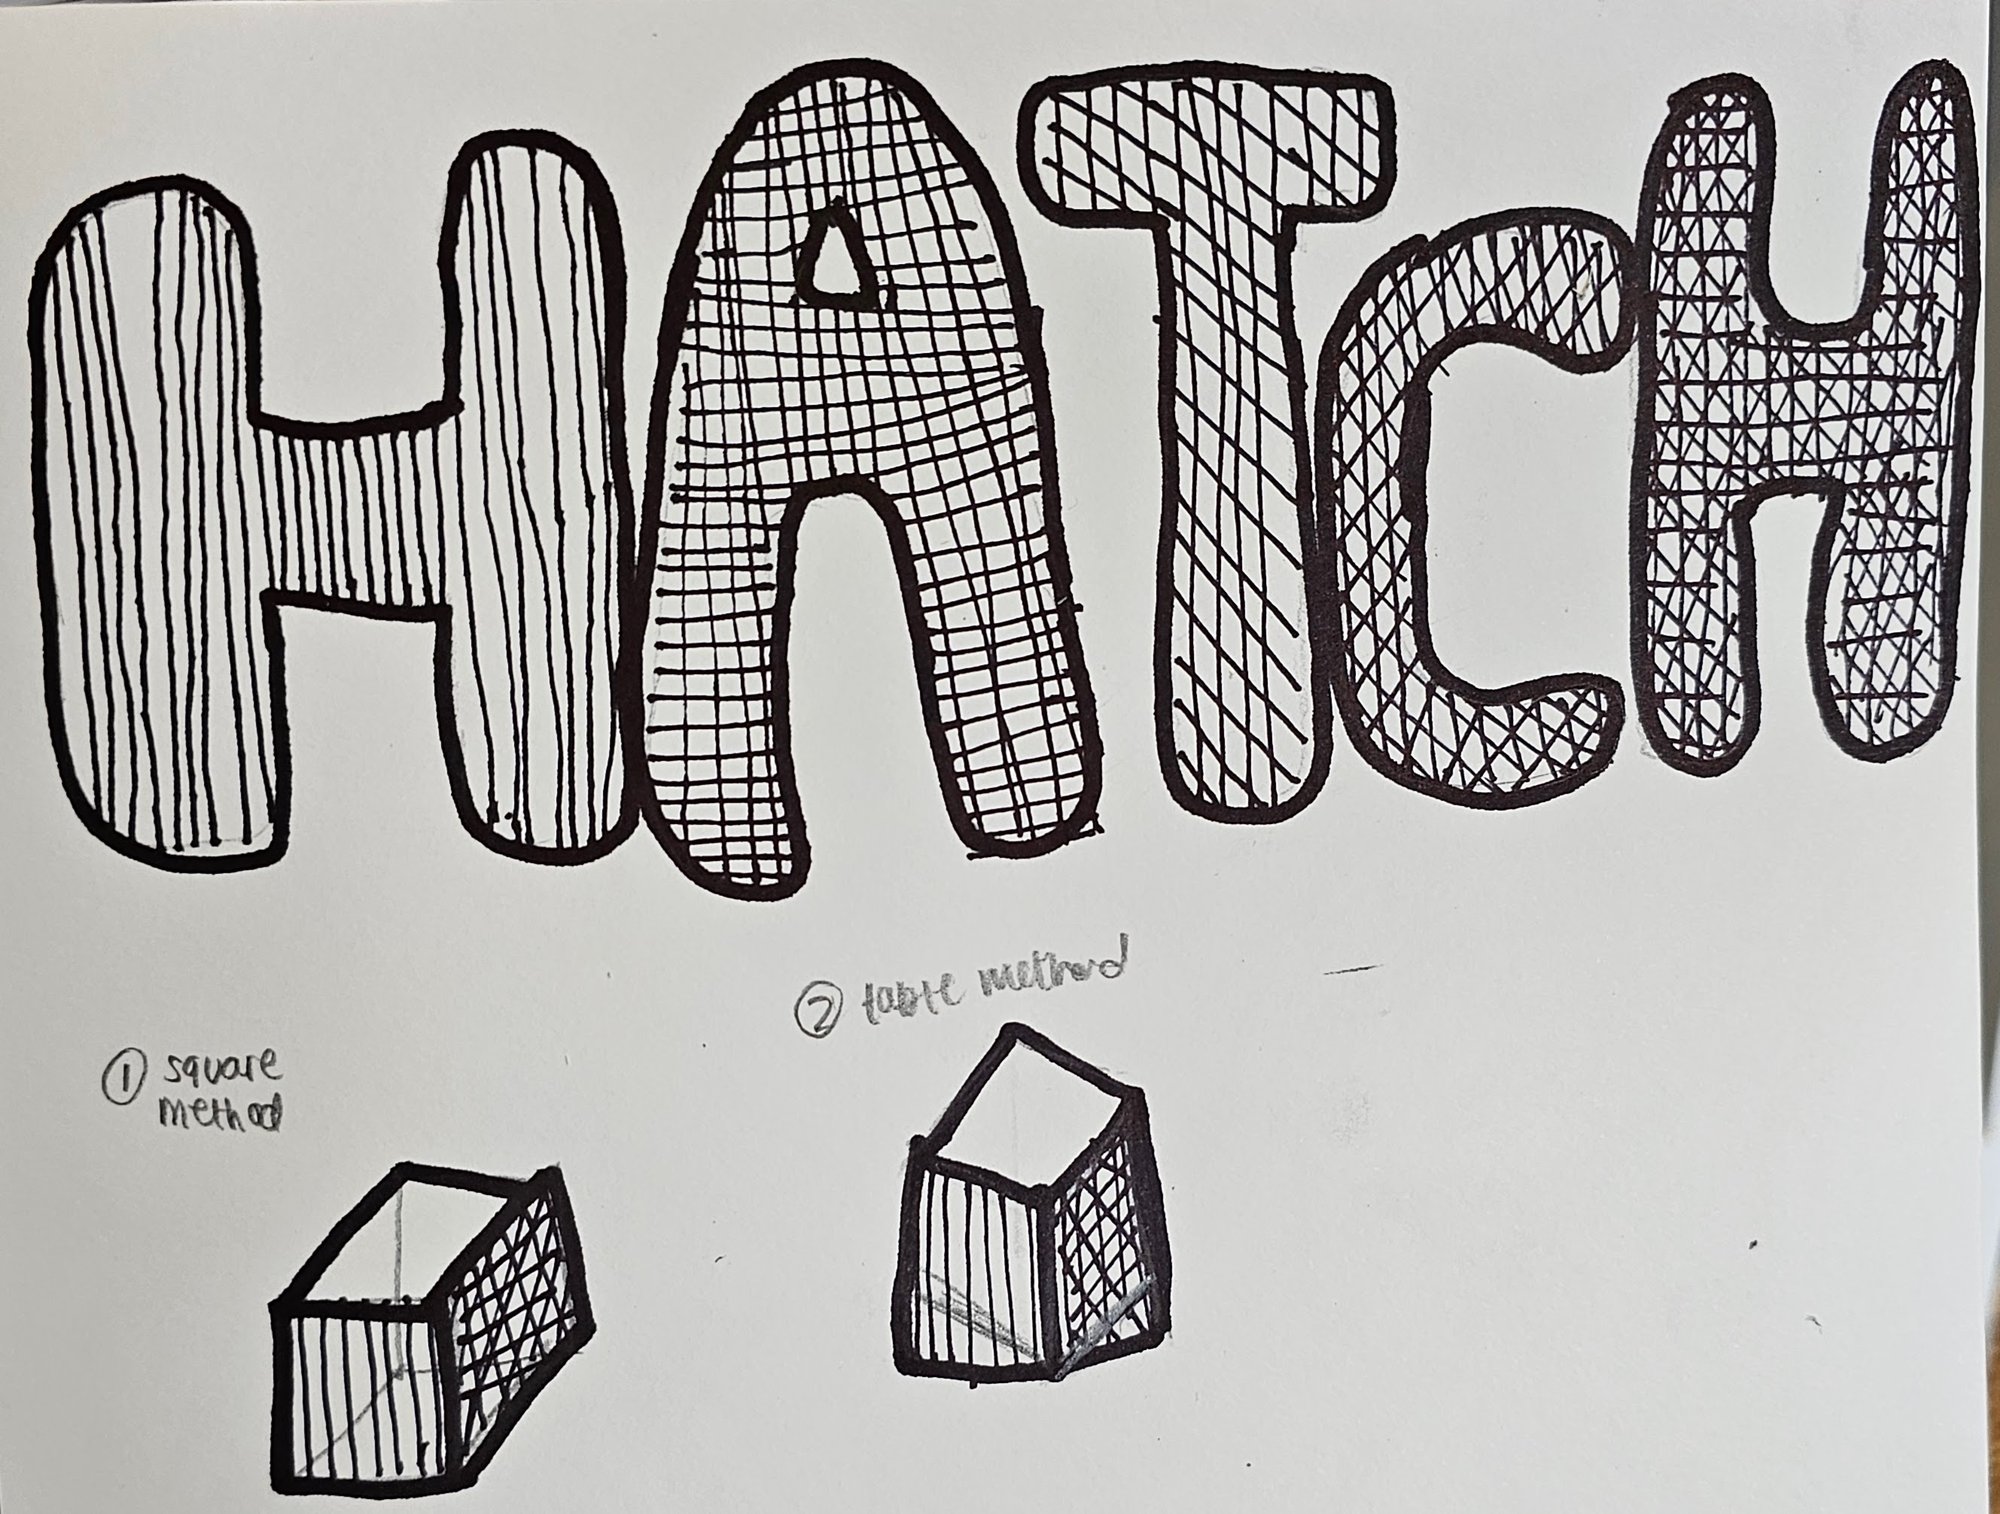 HATCH
② table method
① square
method